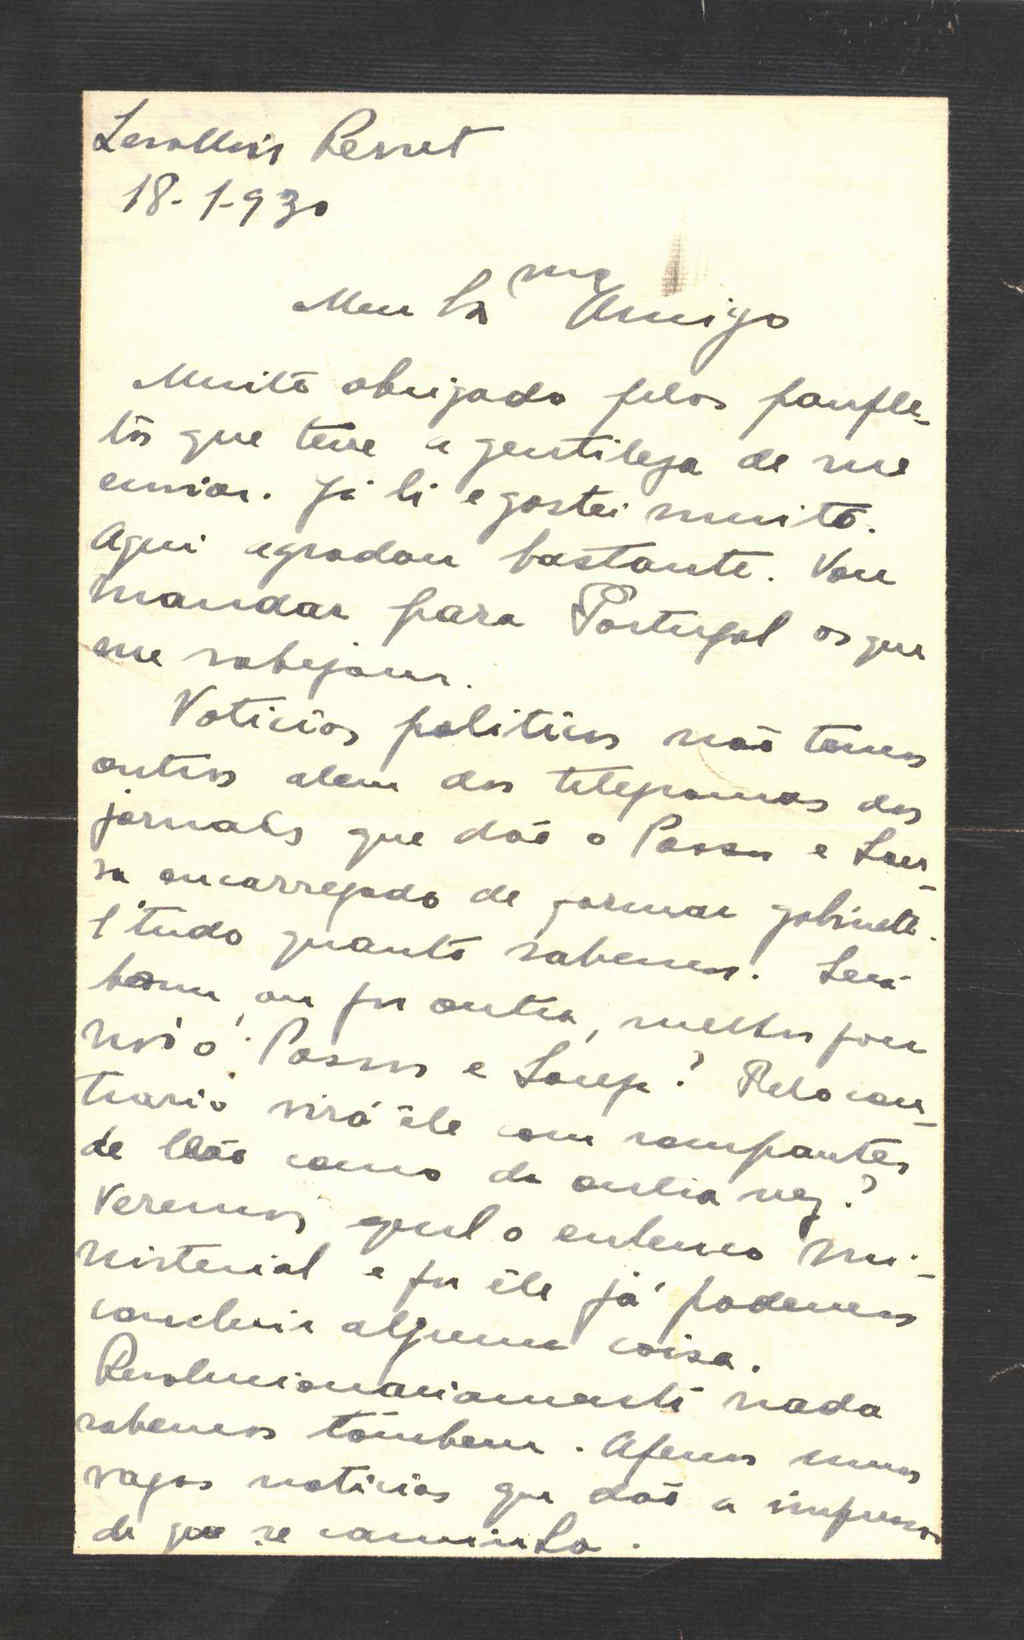 Levallois Perret
18-1-930
Meu Ex mo Amigo
Muito obrigado pelos panfle-
tos que teve a gentileza de me
enviar. Já li e gostei muito.
Aqui agradou bastante. Vou
mandar para Portugal os que
me sobejam.
Noticias politicas não temos
outras alem dos telegramas dos
jornais que dão o Passos e Sou-
sa encarregado de formar gabinete.
É tudo quanto sabemos. Será
bom, ou por outra, melhor para
nós o Passos e Sousa? Pelo con-
trario virá êle com rompantes
de leão como da outra vez?
Veremos qual o elenco mi-
nisterial e por êle já podemos
concluir alguma coisa.
Revolucionariamente nada
sabemos tambem. Apenas umas
vagas noticias que dão a impressão
de que se caminha.